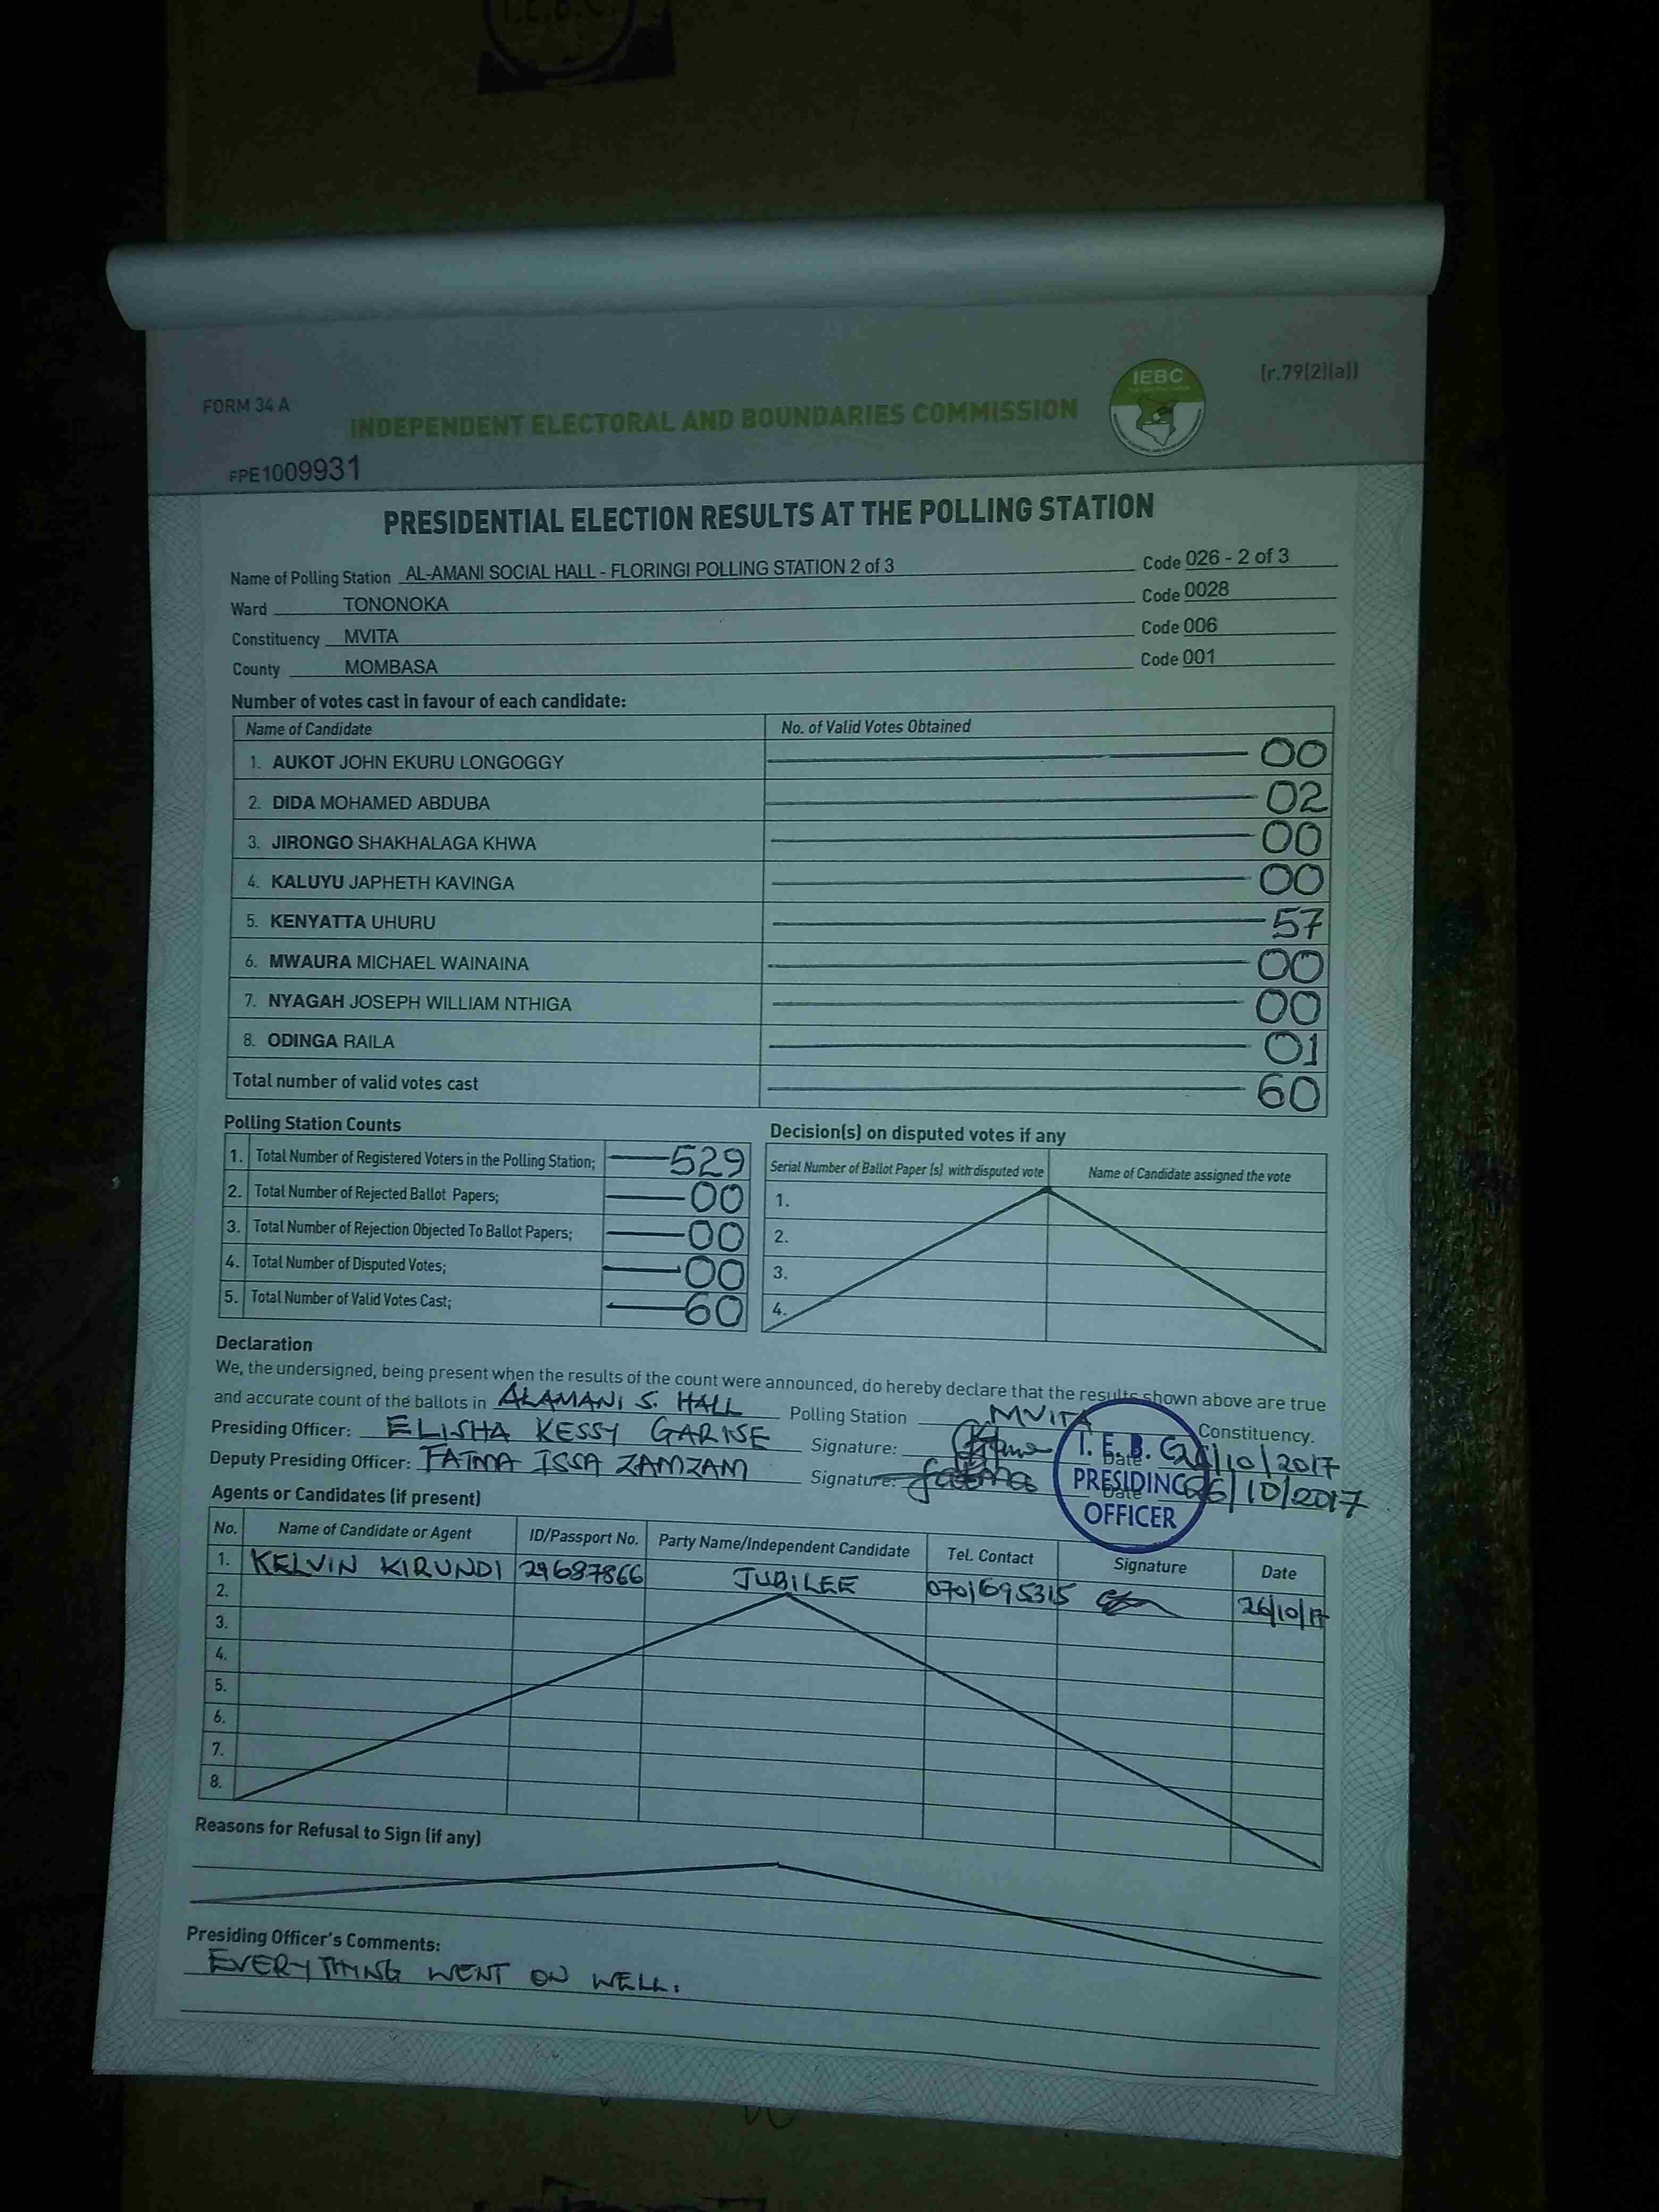 I.E.B.C.
FORM 34 A
(r.79(2)(a))
IEBC
INDEPENDENT ELECTORAL AND BOUNDARIES COMMISSION
FPE1009931
PRESIDENTIAL ELECTION RESULTS AT THE POLLING STATION
Name of Polling Station AL-AMANI SOCIAL HALL - FLORINGI POLLING STATION 2 of 3 Code 026 - 2 of 3
Ward TONONOKA Code 0028
Constituency MVITA Code 006
County MOMBASA Code 001
Number of votes cast in favour of each candidate:
Name of Candidate No. of Valid Votes Obtained
1. AUKOT JOHN EKURU LONGOGGY 00
2. DIDA MOHAMED ABDUBA 02
3. JIRONGO SHAKHALAGA KHWA 00
4. KALUYU JAPHETH KAVINGA 00
5. KENYATTA UHURU 57
6. MWAURA MICHAEL WAINAINA 00
7. NYAGAH JOSEPH WILLIAM NTHIGA 00
8. ODINGA RAILA 01
Total number of valid votes cast 60
Polling Station Counts
1. Total Number of Registered Voters in the Polling Station; 529
2. Total Number of Rejected Ballot Papers; 00
3. Total Number of Rejection Objected To Ballot Papers; 00
4. Total Number of Disputed Votes; 00
5. Total Number of Valid Votes Cast; 60
Decision(s) on disputed votes if any
Serial Number of Ballot Paper (s) with disputed vote Name of Candidate assigned the vote
1.
2.
3.
4.
Declaration
We, the undersigned, being present when the results of the count were announced, do hereby declare that the results shown above are true
and accurate count of the ballots in ALAMANI S. HALL Polling Station MVITA Constituency.
Presiding Officer: ELISHA KESSY GARISE Signature: Date 26/10/2017
Deputy Presiding Officer: FATMA ISSA ZAMZAM Signature: Date 26/10/2017
I.E.B.C
PRESIDING
OFFICER
Agents or Candidates (if present)
No. Name of Candidate or Agent ID/Passport No. Party Name/Independent Candidate Tel. Contact Signature Date
1. KELVIN KIRUNDI 29687866 JUBILEE 0701695315 26/10/17
2.
3.
4.
5.
6.
7.
8.
Reasons for Refusal to Sign (if any)
Presiding Officer's Comments:
EVERYTHING WENT ON WELL.